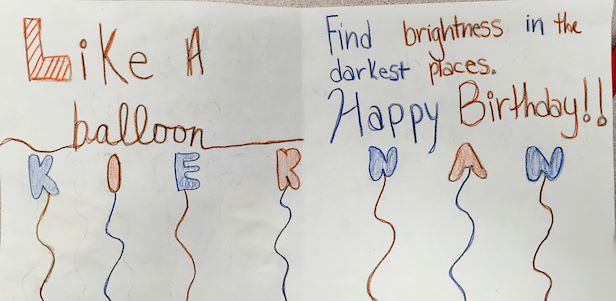 Like A
balloon
Find brightness in the
darkest places.
Happy Birthday!!
KIERNAN